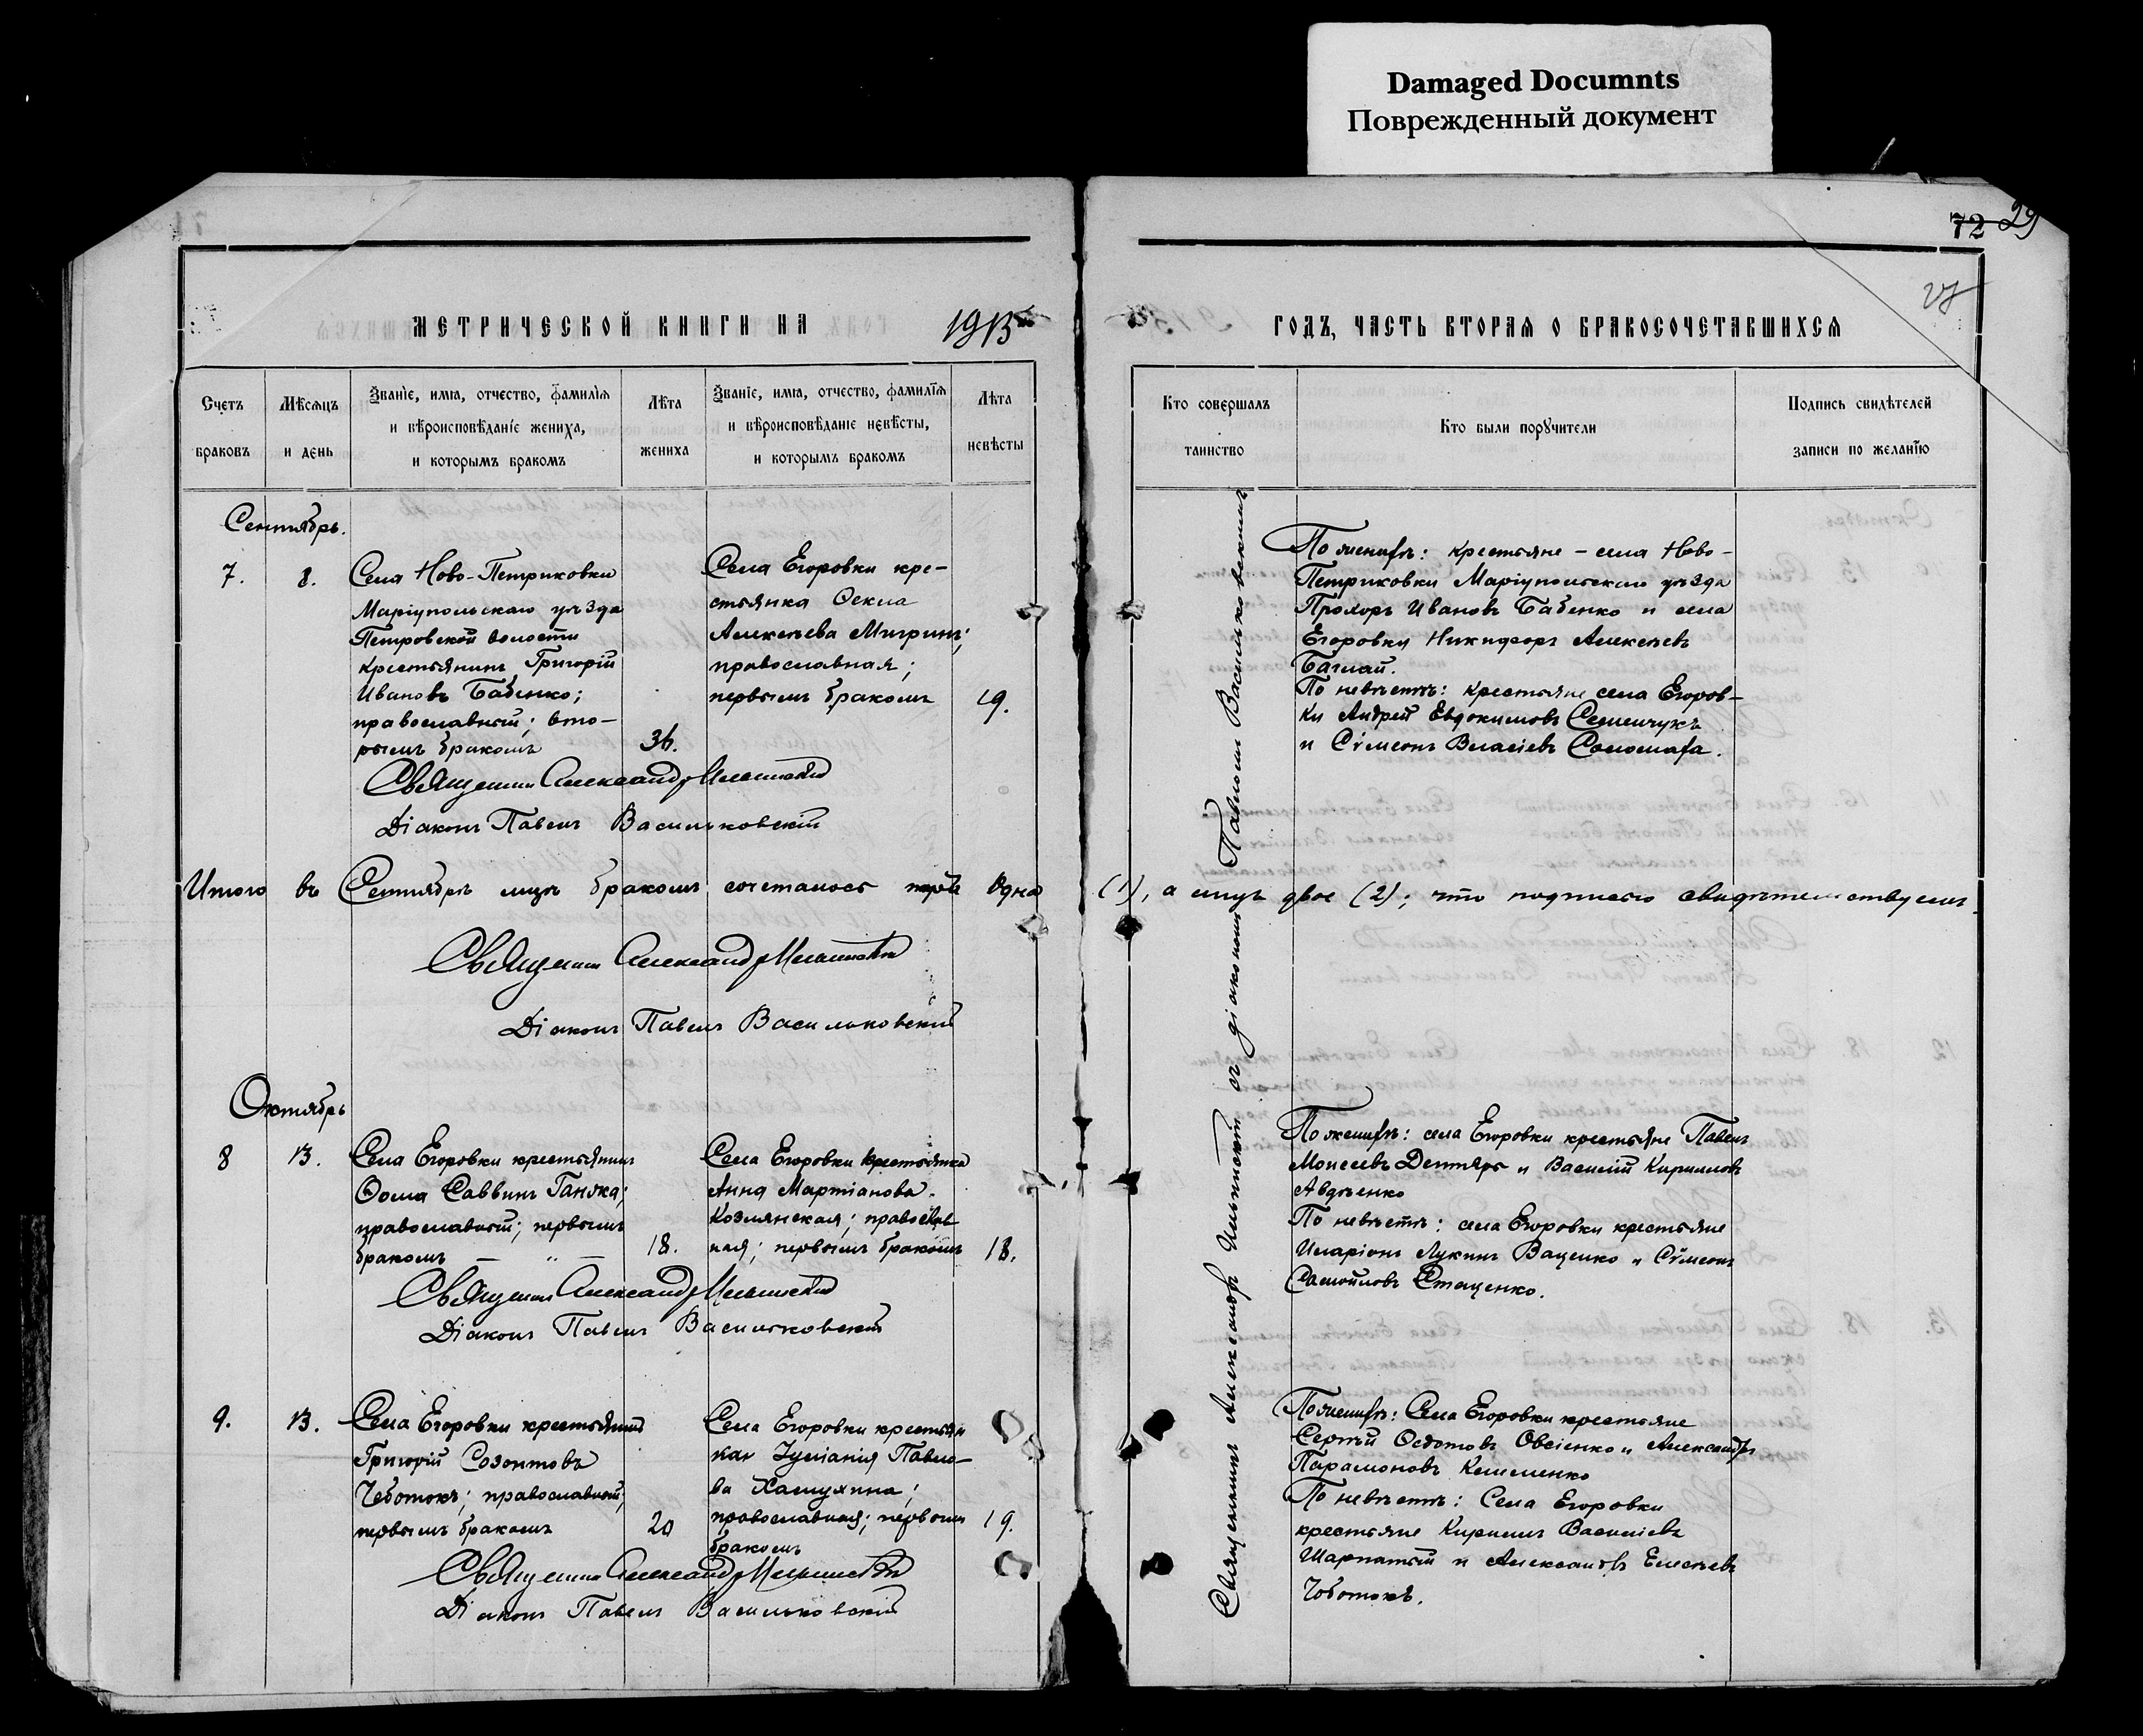 Damaged Documnts
Поврежденный документ
72 29
27
МЕТРИЧЕСКОЙ КНИГИ НА 1913 ГОДЪ, ЧАСТЬ ВТОРАЯ О БРАКОСОЧЕТАВШИХСЯ
Счетъ браковъ
Мѣсяцъ и день
Званіе, имя, отчество, фамилія
и вѣроисповѣданіе жениха,
и которымъ бракомъ
Лѣта жениха
Званіе, имя, отчество, фамилія
и вѣроисповѣданіе невѣсты,
и которымъ бракомъ
Лѣта невѣсты
Кто совершалъ таинство
Кто были поручители
Подпись свидѣтелей
записи по желанію
Сентябрь.
7.
8.
Села Ново-Петриковки
Маріупольскаго уѣзда
Петровской волости
крестьянинъ Григорій
Ивановъ Бабенко;
православный; вто-
рымъ бракомъ
36.
Села Егоровки кре-
стьянка Ѳекла
Алексѣева Мигринъ;
православная;
первымъ бракомъ
19.
По женихѣ: крестьяне – села Ново-
Петриковки Маріупольскаго уѣзда
Прохоръ Ивановъ Бабенко и села
Егоровки Никифоръ Алексѣевъ
Баглай.
По невѣстѣ: крестьяне села Егоров-
ки Андрей Евдокимовъ Семенчукъ
и Сѵмеонъ Власіевъ Соломаха.
Священникъ Александръ Ильинскій
Діаконъ Павелъ Васильковскій
Итого въ Сентябрѣ мцѣ бракомъ сочеталось Одна (1), а лицъ двое (2); что подписью свидѣтельствуемъ.
Священникъ Александръ Ильинскій
Діаконъ Павелъ Васильковскій
Священникъ Александръ Ильинскій съ діакономъ Павломъ Васильковскимъ
Октябрь
8
13.
Села Егоровки крестьянинъ
Ѳома Саввинъ Ганжа;
православный; первымъ
бракомъ — „ —
18.
Села Егоровки крестьянка
Анна Мартіанова
Козлянская; православ
ная; первымъ бракомъ
18.
По женихѣ: села Егоровки крестьяне Павелъ
Моисеевъ Дегтярь и Василій Кирилловъ
Авдѣенко
По невѣстѣ: села Егоровки крестьяне
Иларіонъ Лукинъ Ваценко и Сѵмеонъ
Самойловъ Стаценко.
Священникъ Александръ Ильинскій
Діаконъ Павелъ Васильковскій
9.
13.
Села Егоровки крестьянинъ
Григорій Созонтовъ
Чоботокъ; православный;
первымъ бракомъ
20
Села Егоровки крестьян
кая Іуліанія Павло-
ва
православная; первымъ
бракомъ
19.
По женихѣ: Села Егоровки крестьяне
Сергѣй Ѳедотовъ Овсіенко и Александръ
Парамоновъ Клименко
По невѣстѣ: Села Егоровки
крестьяне Кириллъ Васильевъ
Шарпатый и Александръ Елисѣевъ
Чоботокъ.
Священникъ Александръ Ильинскій
Діаконъ Павелъ Васильковскій